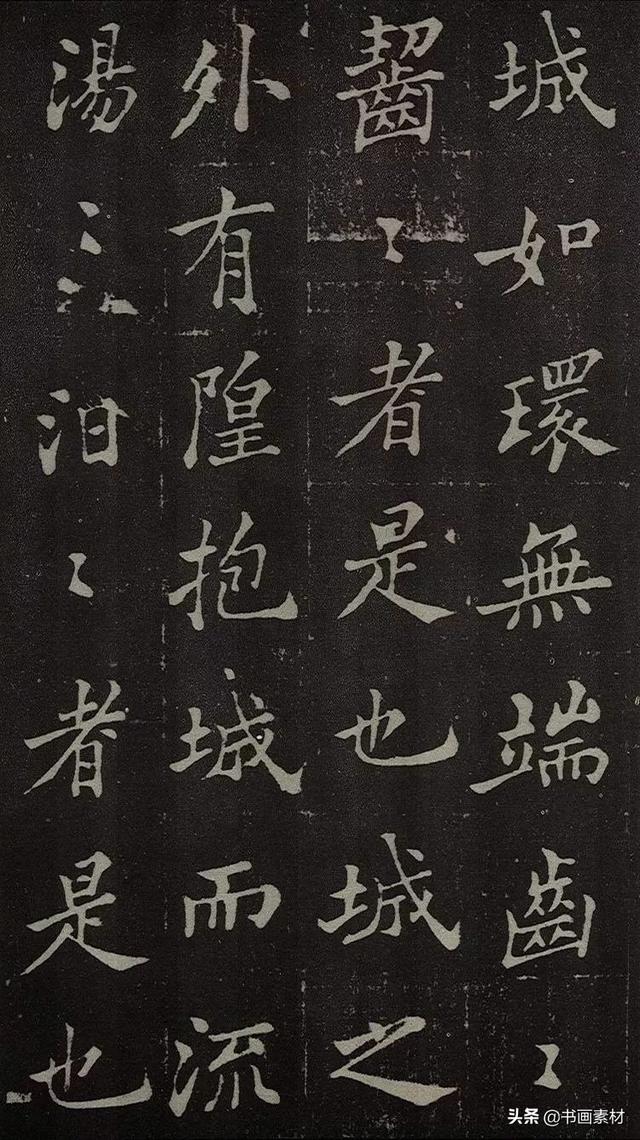 城如環無端齒〻
齧〻者是也城之
外有隍抱城而流
湯〻汩〻者是也
头条 @书画素材